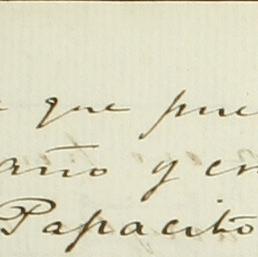 que pue
año y en
Papacito